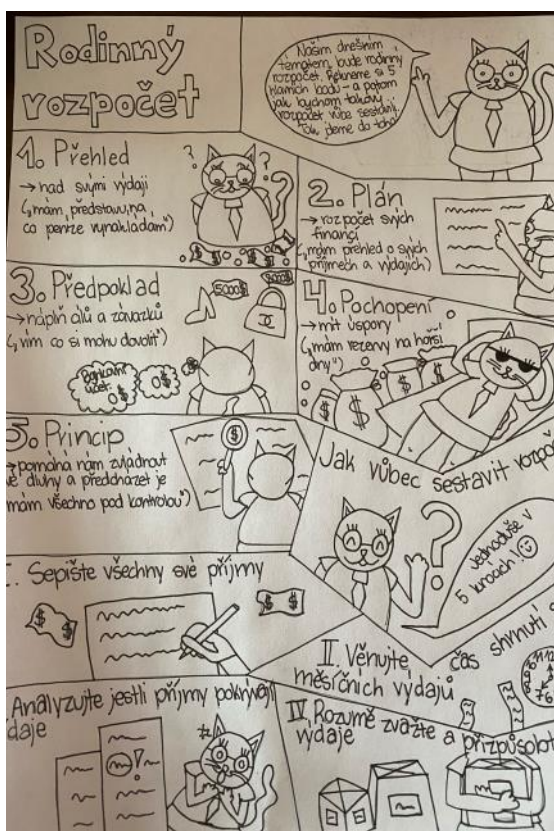 Rodinný
rozpočet
Naším dnešním
tématem, bude rodinný
rozpočet. Řekneme si 5
hlavních bodů – a potom
jak bychom takový
rozpočet vůbec sestavit.
Tak jdeme do toho!
1. Přehled
→ nad svými výdaji
(„mám představu, na
co peníze vynakládám“)
2. Plán
→ rozpočet svých
financí
(„mám přehled o svých
příjmech a výdajích)
3. Předpoklad
→ náplň cílů a závazků
(„vím co si mohu dovolit“)
5000$
Bankovní
účet
0$
0$
4. Pochopení
→ mít úspory
(„mám rezervy na horší
dny“)
5. Princip
→ pomáhá nám zvládnout
dluhy a předcházet je
mám všechno pod kontrolou“)
Jak vůbec sestavit
Jednoduše v
5 krocích!
I. Sepište všechny své příjmy
II. Věnujte čas shrnutí
měsíčních výdajů
Analyzujte jestli příjmy pokrývají
IV. Rozumě zvažte a přizpůsobte
výdaje